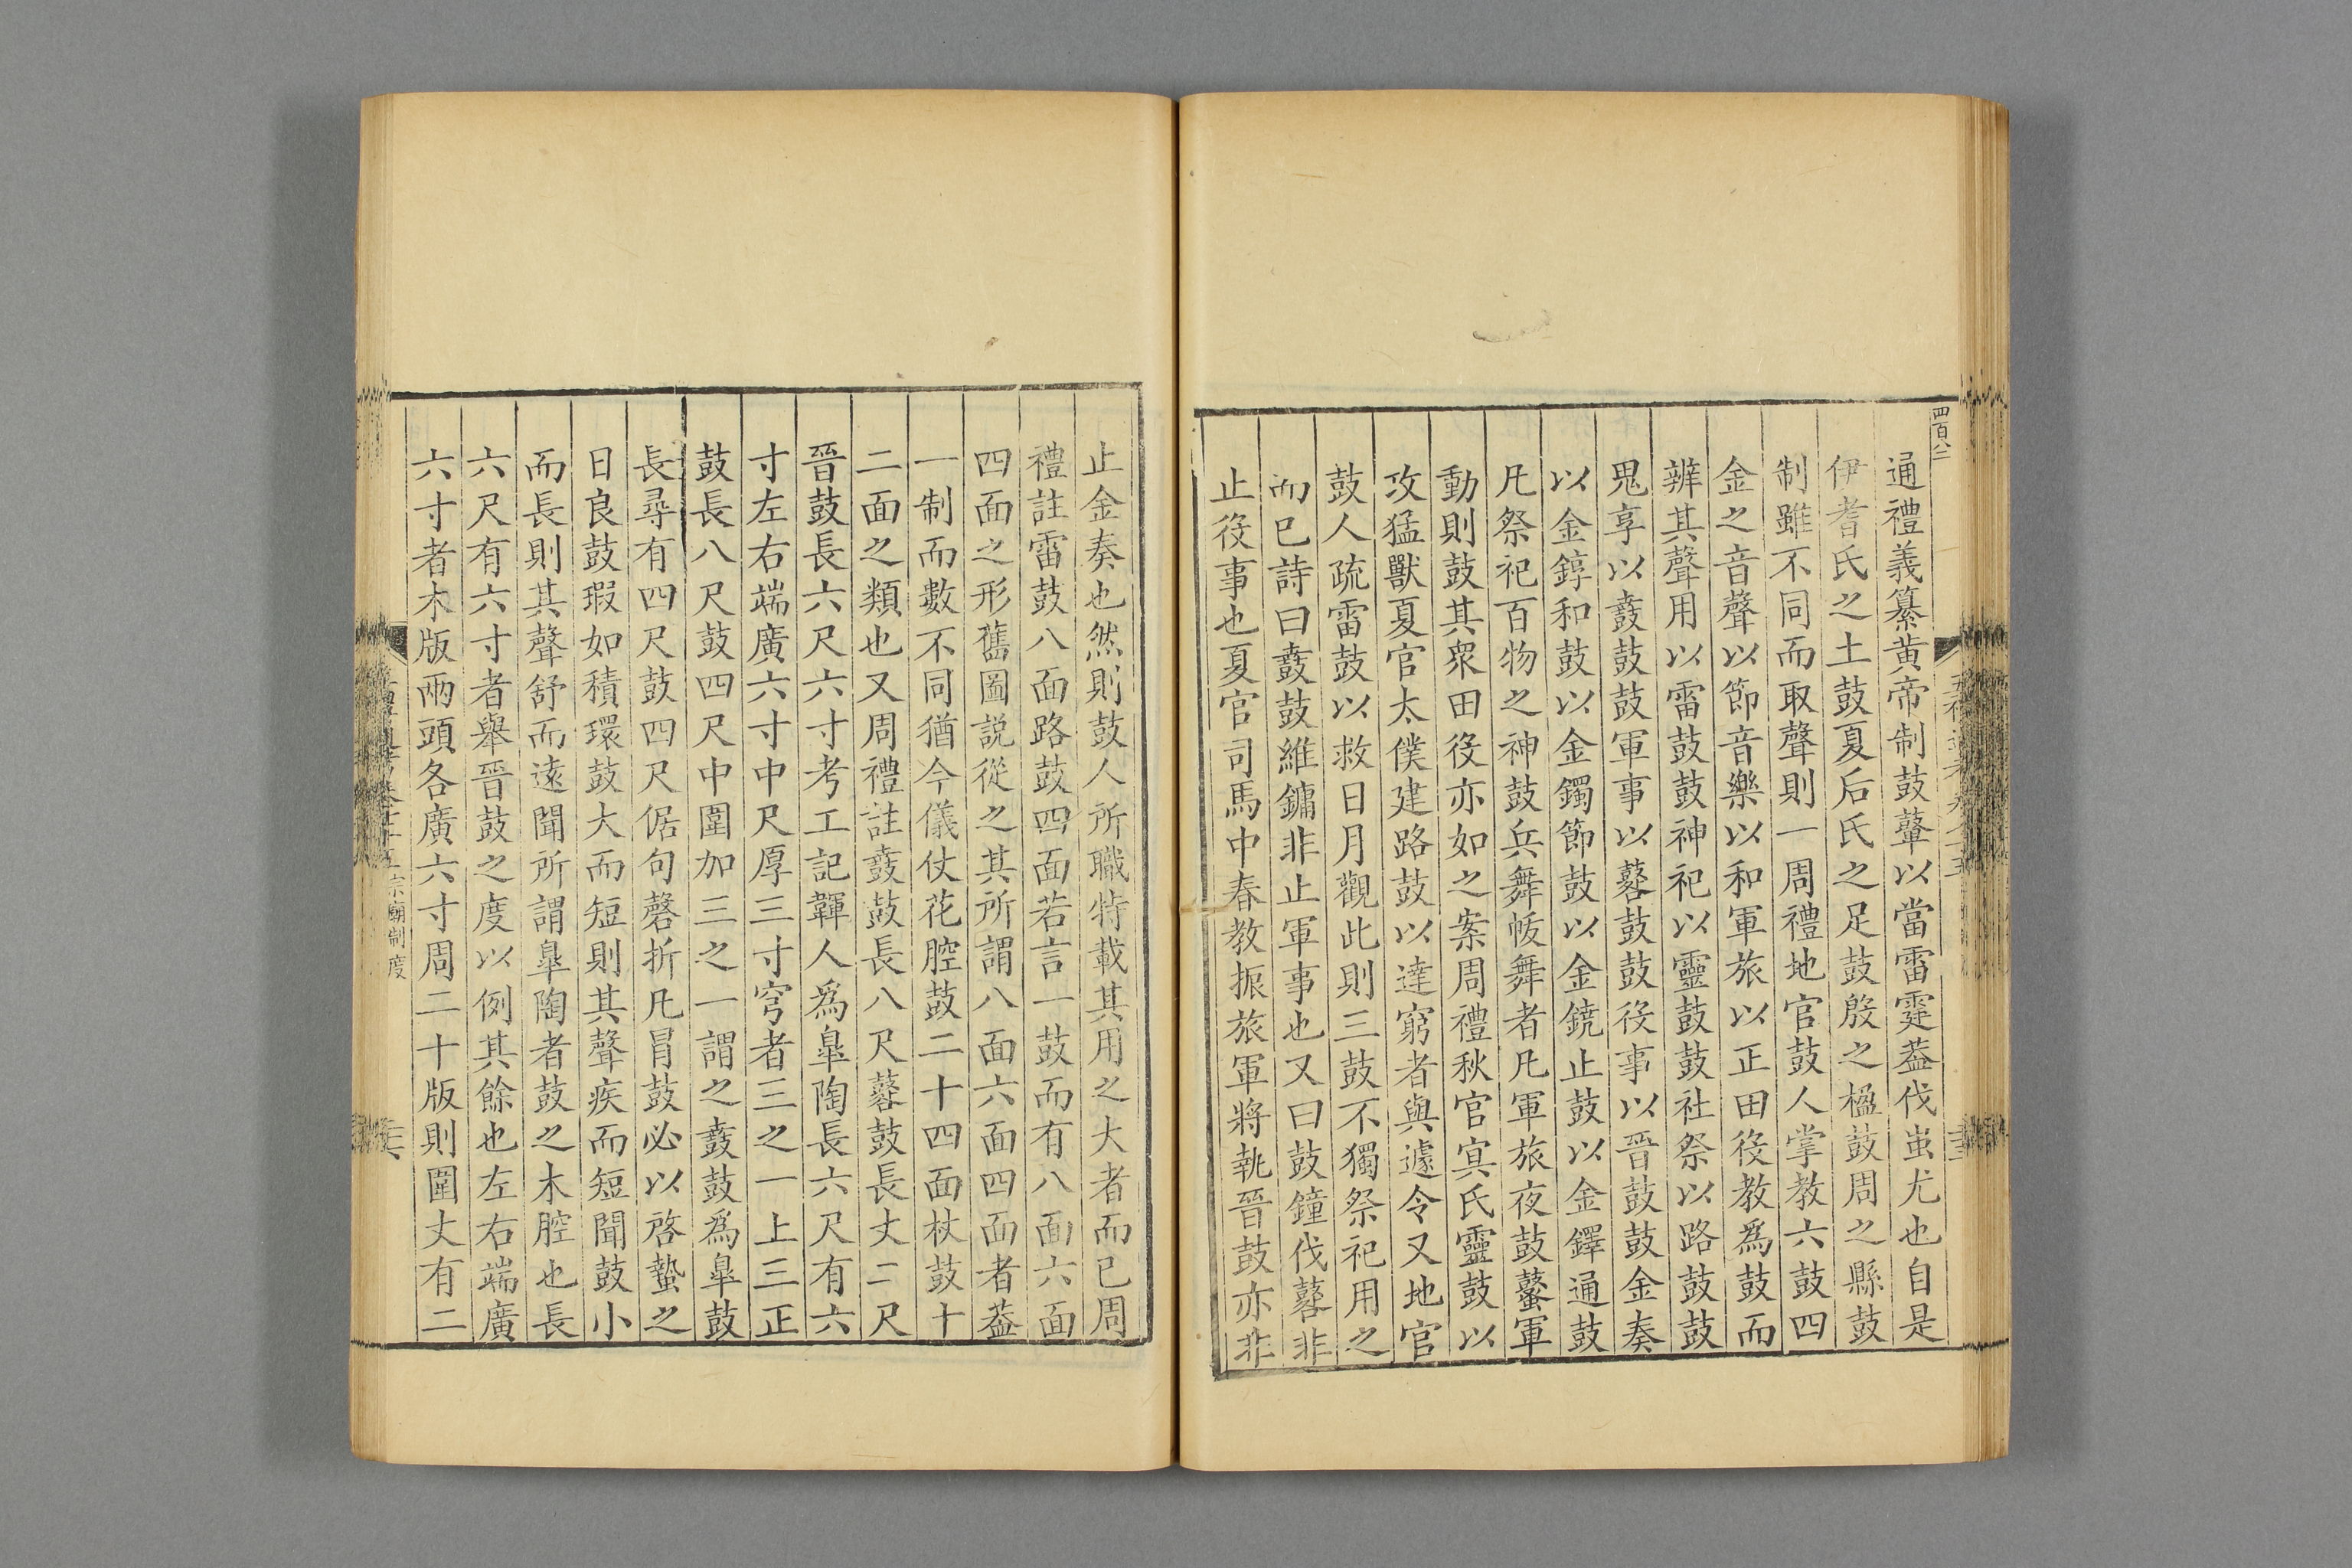 四百八二
通禮義纂黃帝制鼓鼙以當雷霆葢伐蚩尤也自是
伊耆氏之土鼓夏后氏之足鼓殷之楹鼓周之縣鼓
制雖不同而取聲則一周禮地官鼓人掌教六鼓四
金之音聲以節音樂以和軍旅以正田役教爲鼓而
辨其聲用以雷鼓鼓神祀以靈鼓鼓社祭以路鼓鼓
鬼享以鼖鼓鼓軍事以鼛鼓鼓役事以晉鼓鼓金奏
以金錞和鼓以金鐲節鼓以金鐃止鼓以金鐸通鼓
凡祭祀百物之神鼓兵舞帗舞者凡軍旅夜鼓鼜軍
動則鼓其衆田役亦如之案周禮秋官冥氏靈鼓以
攻猛獸夏官太僕建路鼓以達窮者與遽令又地官
鼓人疏雷鼓以救日月觀此則三鼓不獨祭祀用之
而已詩曰鼖鼓維鏞非止軍事也又曰鼓鐘伐鼛非
止役事也夏官司馬中春教振旅軍將執晉鼓亦非
止金奏也然則鼓人所職特載其用之大者而已周
禮註雷鼓八面路鼓四面若言一鼓而有八面六面
四面之形舊圖説從之其所謂八面六面四面者葢
一制而數不同猶今儀仗花腔鼓二十四面杖鼓十
二面之類也又周禮註鼖鼓長八尺鼛鼓長丈二尺
晉鼓長六尺六寸考工記韗人爲臯陶長六尺有六
寸左右端廣六寸中尺厚三寸穹者三之一上三正
鼓長八尺鼓四尺中圍加三之一謂之鼖鼓爲臯鼓
長尋有四尺鼓四尺倨句磬折凡冒鼓必以啓蟄之
日良鼓瑕如積環鼓大而短則其聲疾而短聞鼓小
而長則其聲舒而遠聞所謂臯陶者鼓之木腔也長
六尺有六寸者舉晉鼓之度以例其餘也左右端廣
六寸者木版兩頭各廣六寸周二十版則圍丈有二
宗廟制度